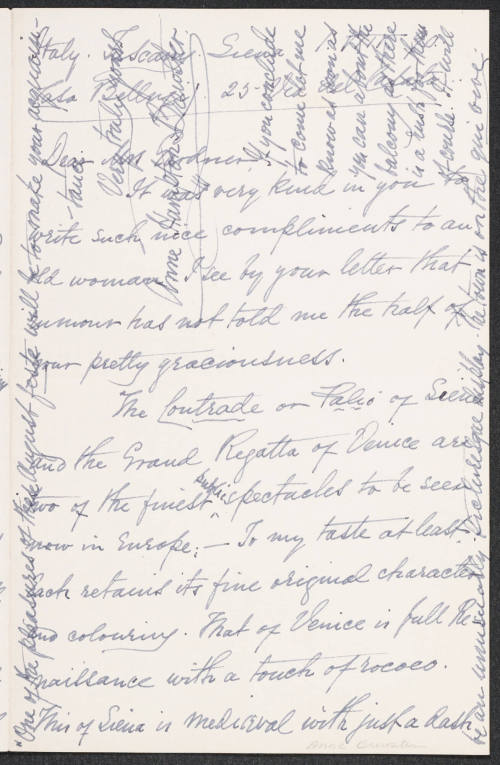 Italy. Tuscany. Siena
Casa 25
Dear Mrs Gardner
It was very kind in you to
write such nice compliments to an
old woman. I see by your letter that
rumour has not told me the half of
your pretty graciousness.
The Contrade or Palio of Siena
and the Grand Regatta of Venice are
two of the finest public spectacles to be seen
now in Europe; — To my taste at least.
Each retains its fine original character
and colouring. That of Venice is full Re-
naissance with a touch of rococo.
This of Siena is mediæval with just a dash
"One of the pleasures of this August feste will be to make your acquain-
-tance
Very truly yours
Anne Hampton Brewster
If you conclude
to come let me
know as soon as
you can about the
balcony as there
is a rush for them
be an unusually picturesque display. The town is on the qui vive.
Anne Brewster